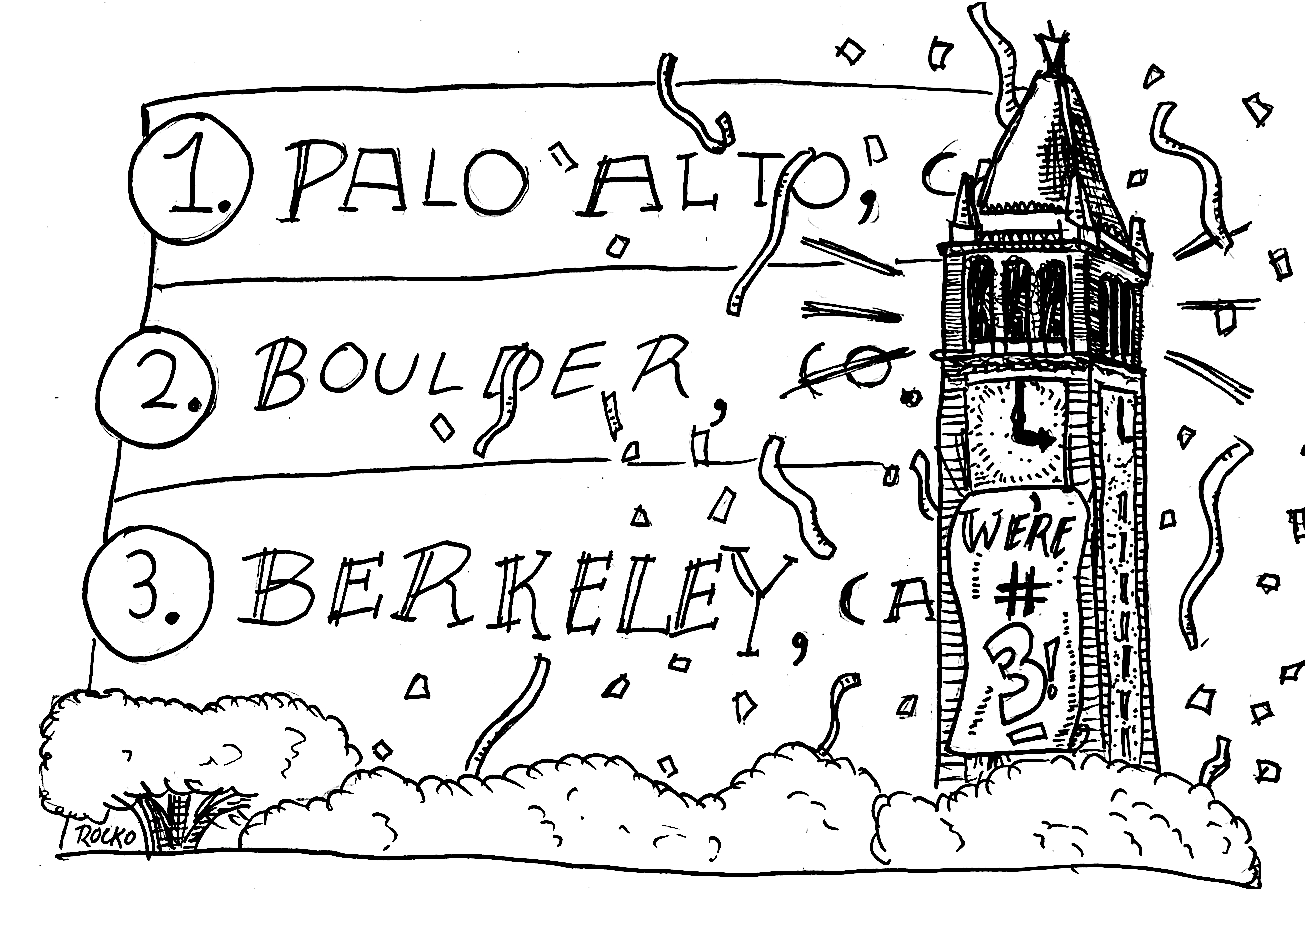 1. PALO ALTO, CA
2. BOULDER, CO.
3. BERKELEY, CA
WE'RE
#
3!
ROCKO